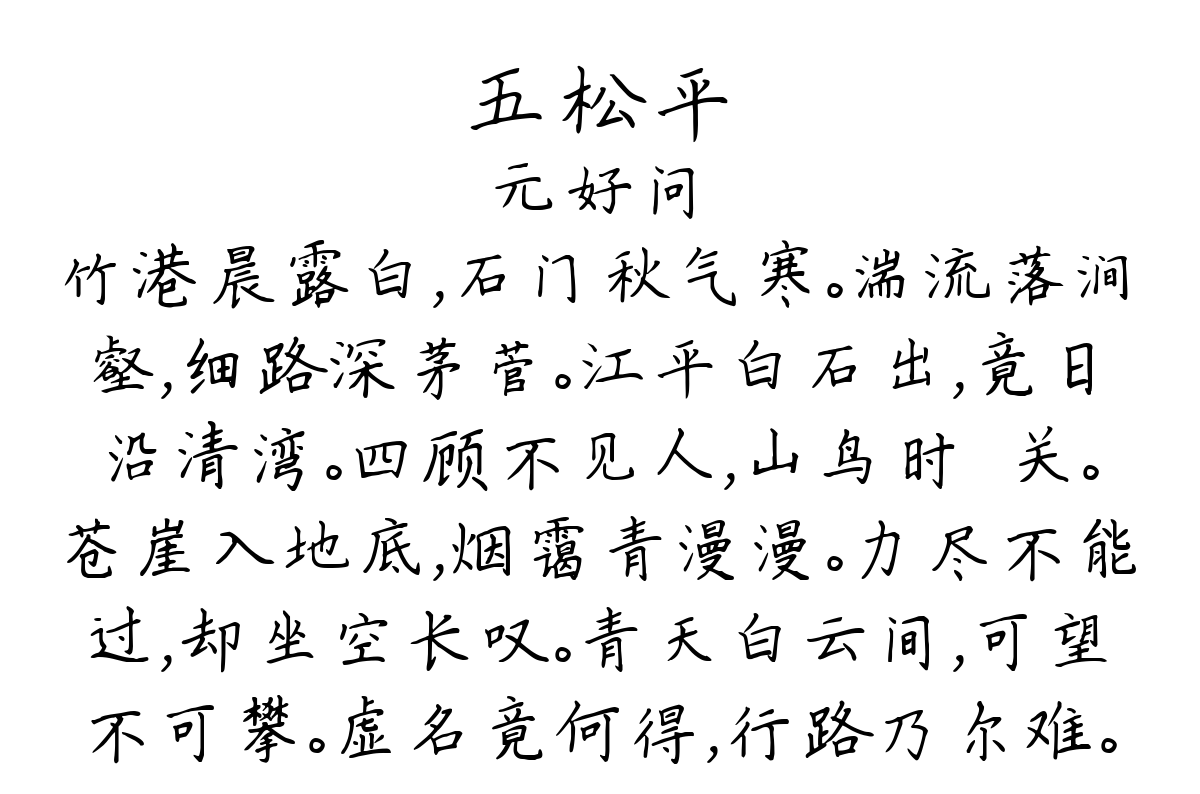 五松平
元好问
竹港晨露白,石门秋气寒。湍流落涧
壑,细路深茅菅。江平白石出,竟日
沿清湾。四顾不见人,山鸟时 关。
苍崖入地底,烟霭青漫漫。力尽不能
过,却坐空长叹。青天白云间,可望
不可攀。虚名竟何得,行路乃尔难。